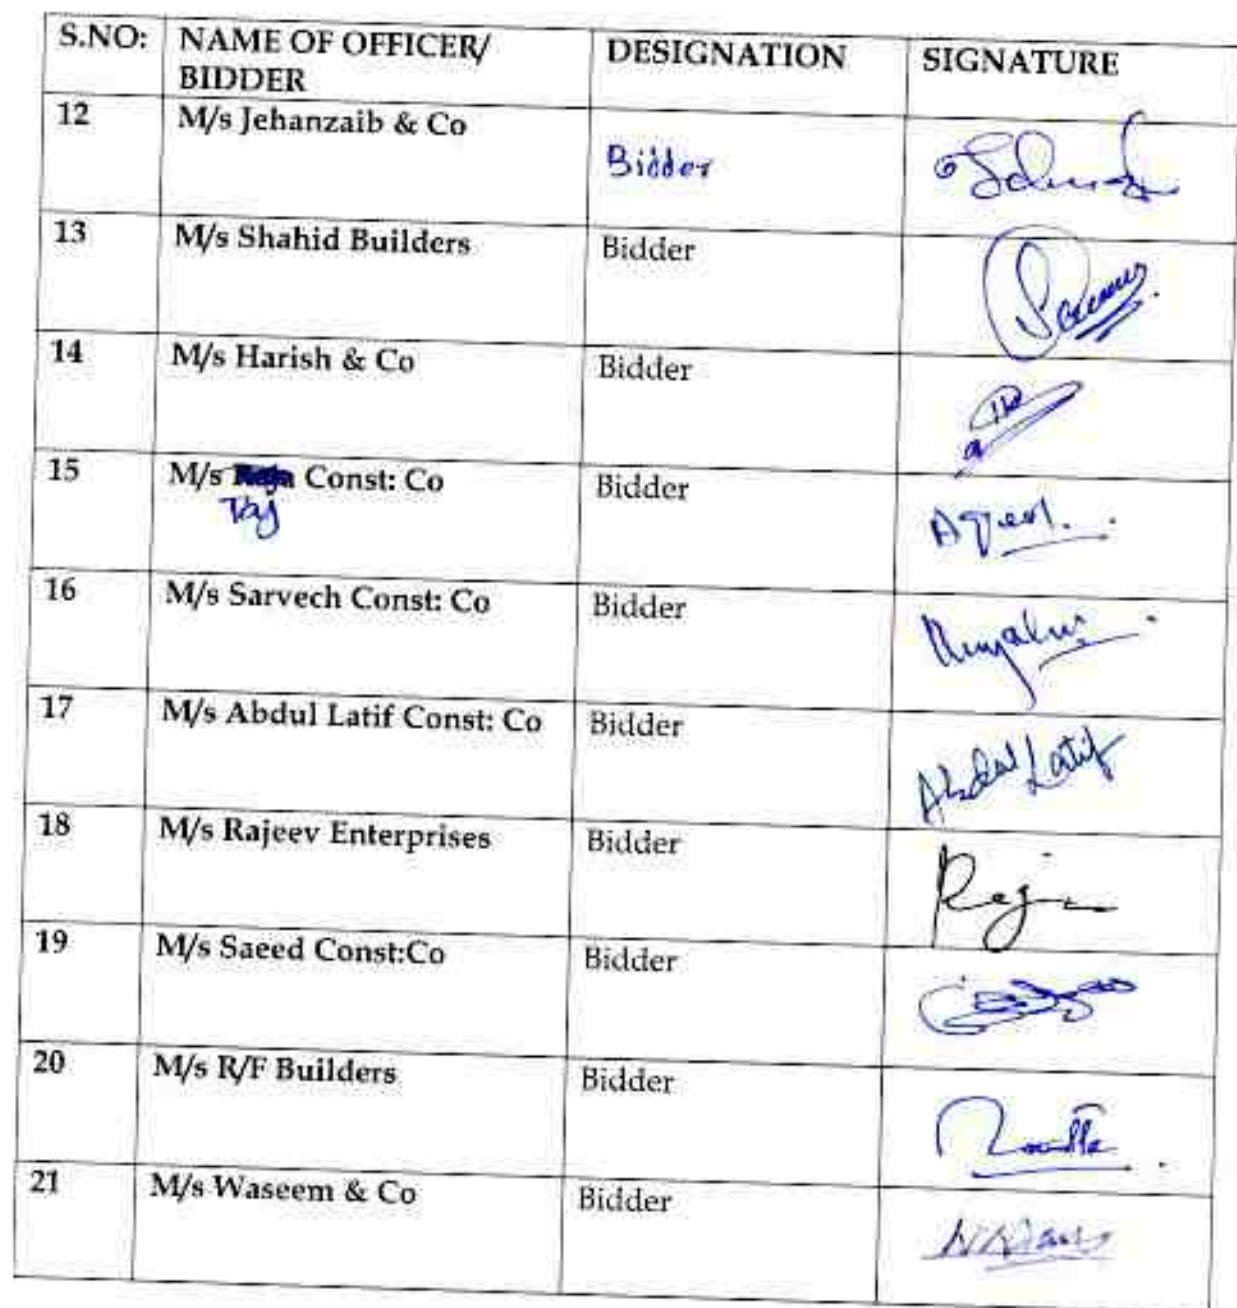 S.NO: NAME OF OFFICER/ DESIGNATION SIGNATURE
BIDDER
12 M/s Jehanzaib & Co
Bidder
13 M/s Shahid Builders Bidder
14 M/s Harish & Co Bidder
15 M/s Const: Co Bidder
Taj
16 M/s Sarvech Const: Co Bidder
17 M/s Abdul Latif Const: Co Bidder
Abdul Latif
18 M/s Rajeev Enterprises Bidder
19 M/s Saeed Const:Co Bidder
20 M/s R/F Builders Bidder
21 M/s Waseem & Co Bidder